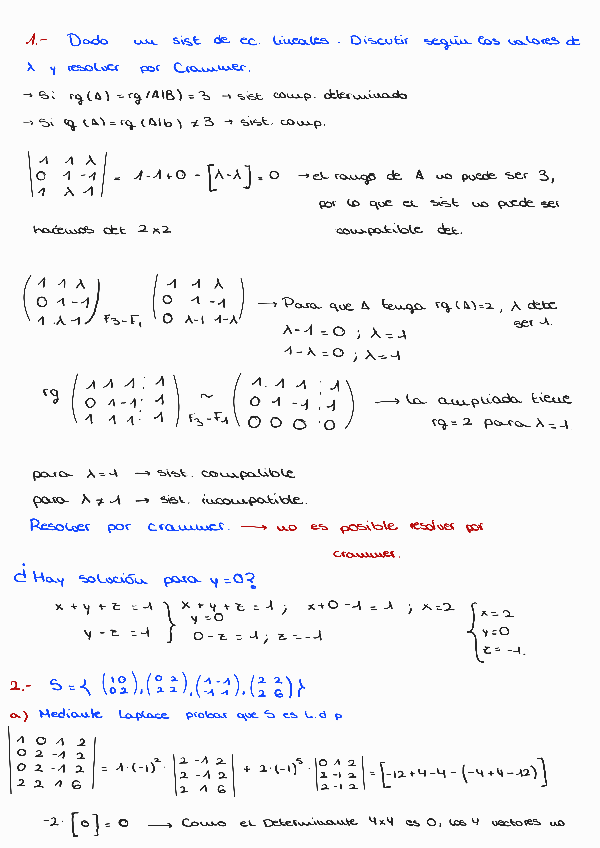 1.- Dado un sist de ec. lineales. Discutir según los valores de
λ y resolver por Crammer.
→ Si rg(A) = rg(A|B) = 3 → sist comp. determinado
→ Si rg(A) = rg(A|b) ≠ 3 → sist. comp.
|1 1 λ|
|0 1 -1| = 1-1+0 - [λ-λ] = 0 → el rango de A no puede ser 3,
|1 λ 1| por lo que el sist no puede ser
hacemos det 2x2 compatible det.
(1 1 λ) (1 1 λ)
(0 1 -1) (0 1 -1) → Para que A tenga rg(A)=2, λ debe
(1 λ 1) F3-F1 (0 λ-1 1-λ) ser 1.
λ-1 = 0 ; λ = 1
1-λ = 0 ; λ = 1
rg (1 1 1 ¦ 1) ~ (1 1 1 ¦ 1)
(0 1 -1 ¦ 1) (0 1 -1 ¦ 1) → La ampliada tiene
(1 1 1 ¦ 1) F3-F1 (0 0 0 0) rg = 2 para λ = 1
para λ = 1 → sist. compatible
para λ ≠ 1 → sist. incompatible.
Resolver por crammer. → no es posible resolver por
crammer.
¿Hay solución para y=0?
x + y + z = 1 } x + y + z = 1 ; x+0-1 = 1 ; x = 2 { x = 2
y = 0 y = 0
y - z = 1 0 - z = 1 ; z = -1 z = -1.
2.- S = { (1 0 / 0 2), (0 2 / 2 2), (1 -1 / -1 1), (2 2 / 2 6) }
a) Mediante Laplace probar que S es L.d p
|1 0 1 2|
|0 2 -1 2| |2 -1 2| |0 1 2|
|0 2 -1 2| = 1·(-1)² · |2 -1 2| + 2·(-1)⁵ · |2 -1 2| = [-12+4-4 - (-4+4-12)]
|2 2 1 6| |2 1 6| |2 -1 2|
-2 · [0] = 0 → Como el Determinante 4x4 es 0, los 4 vectores no